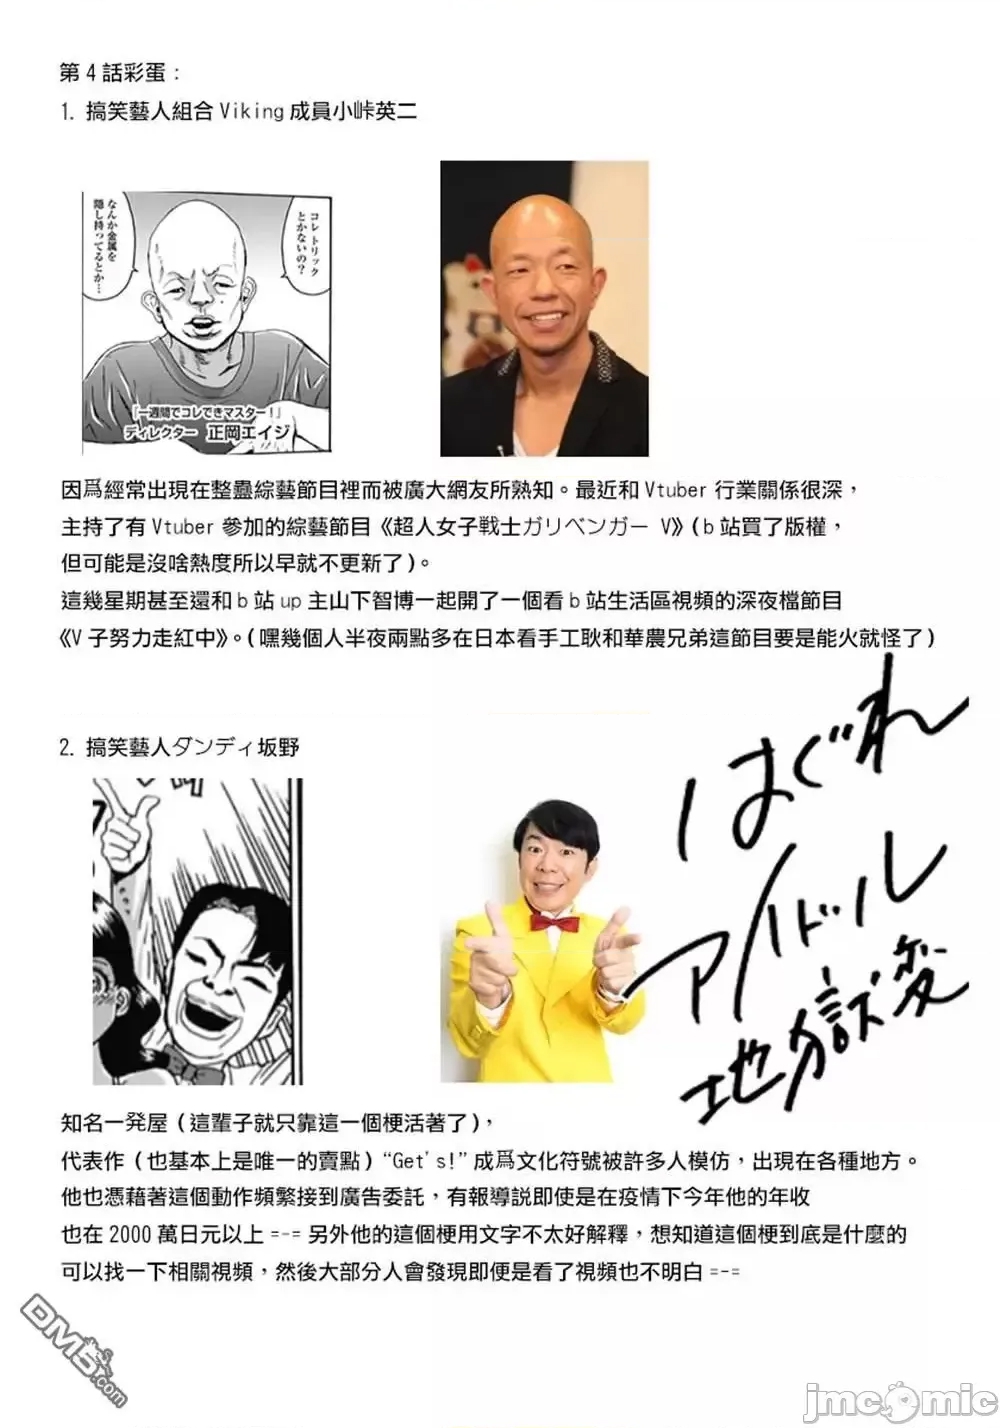 第4話彩蛋：
1. 搞笑藝人組合Viking成員小峠英二
コレ トリック
とかないの？
なんか金属を
隠し持ってるとか…
『一週間でコレできマスター！』
ディレクター 正岡エイジ
因爲經常出現在整蠱綜藝節目裡而被廣大網友所熟知。最近和Vtuber行業關係很深，
主持了有Vtuber參加的綜藝節目《超人女子戦士ガリベンガー V》(b站買了版權，
但可能是沒啥熱度所以早就不更新了)。
這幾星期甚至還和b站up主山下智博一起開了一個看b站生活區視頻的深夜檔節目
《V子努力走紅中》。(嘿幾個人半夜兩點多在日本看手工耿和華農兄弟這節目要是能火就怪了)
2. 搞笑藝人ダンディ坂野
はぐれ
アイドル
地獄変
知名一発屋(這輩子就只靠這一個梗活著了)，
代表作(也基本上是唯一的賣點)“Get's!”成爲文化符號被許多人模仿，出現在各種地方。
他也憑藉著這個動作頻繁接到廣告委託，有報導説即使是在疫情下今年他的年收
也在2000萬日元以上=-=另外他的這個梗用文字不太好解釋，想知道這個梗到底是什麼的
可以找一下相關視頻，然後大部分人會發現即便是看了視頻也不明白=-=
DM5.com
jmcomic